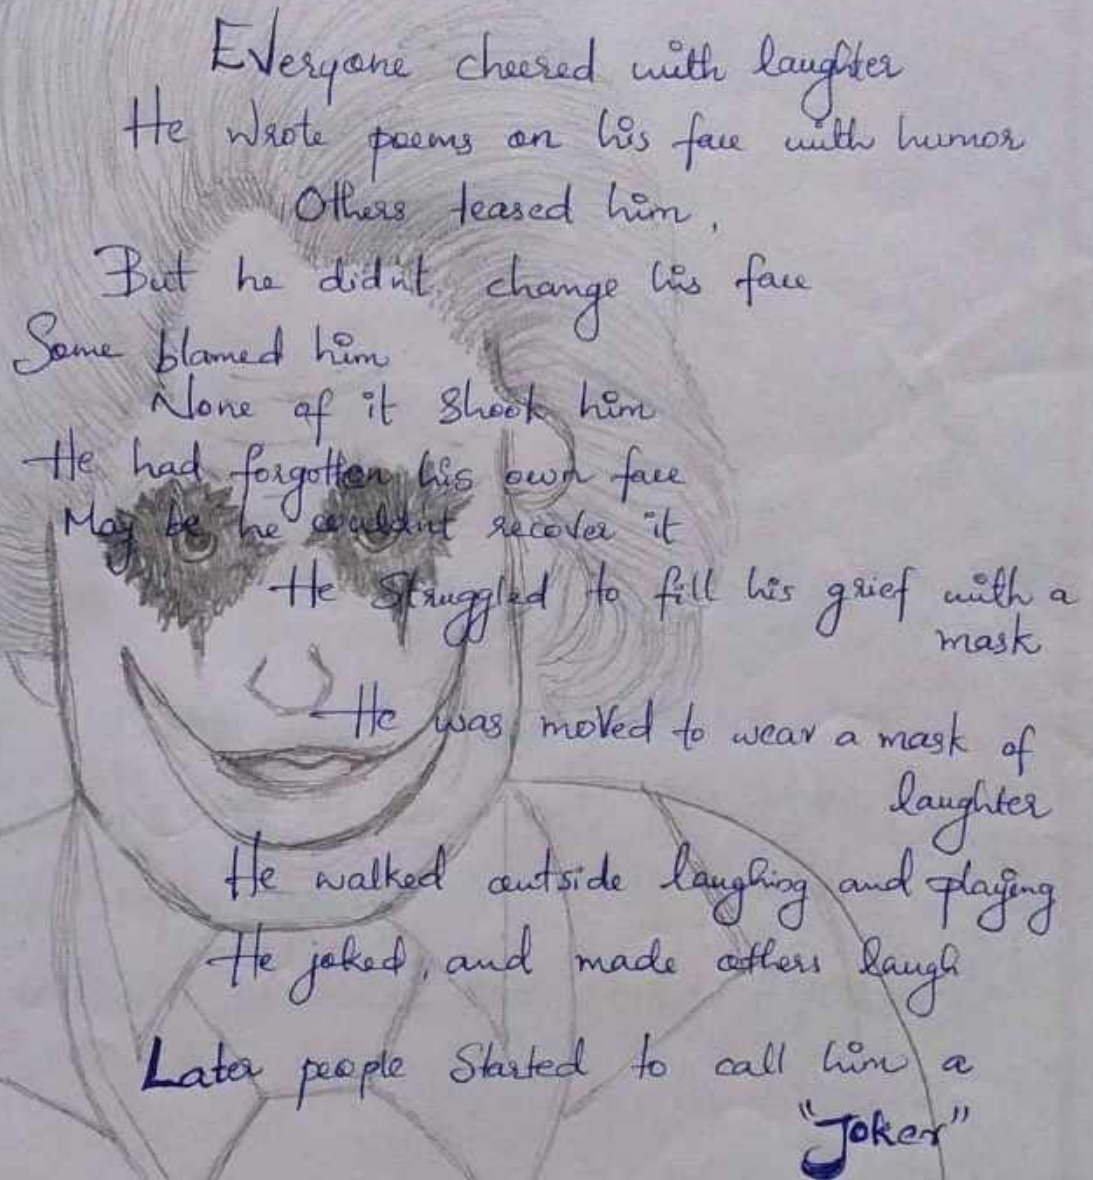 Everyone cheered with laughter
He wrote poems on his face with humor
Others teased him,
But he didn't change his face
Some blamed him
None of it shook him
He had forgotten his own face
May be he couldn't recover it
He struggled to fill his grief with a
mask
He was moved to wear a mask of
laughter
He walked outside laughing and playing
He joked, and made others laugh
Later people started to call him a
"Joker"